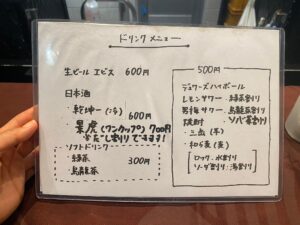 ドリンクメニュー
生ビール エビス 600円
日本酒
・乾坤一(冷) 600円
・景虎(ワンカップ) 700円
※だし割りできます!
ソフトドリンク
・緑茶
・烏龍茶
300円
500円
・デュワーズハイボール
・レモンサワー ・緑茶割り
・男梅サワー ・烏龍茶割り
・焼酎 ・ソバ茶割り
・三岳(芋)
・和ら麦(麦)
ロック・水割り
ソーダ割り・湯割り